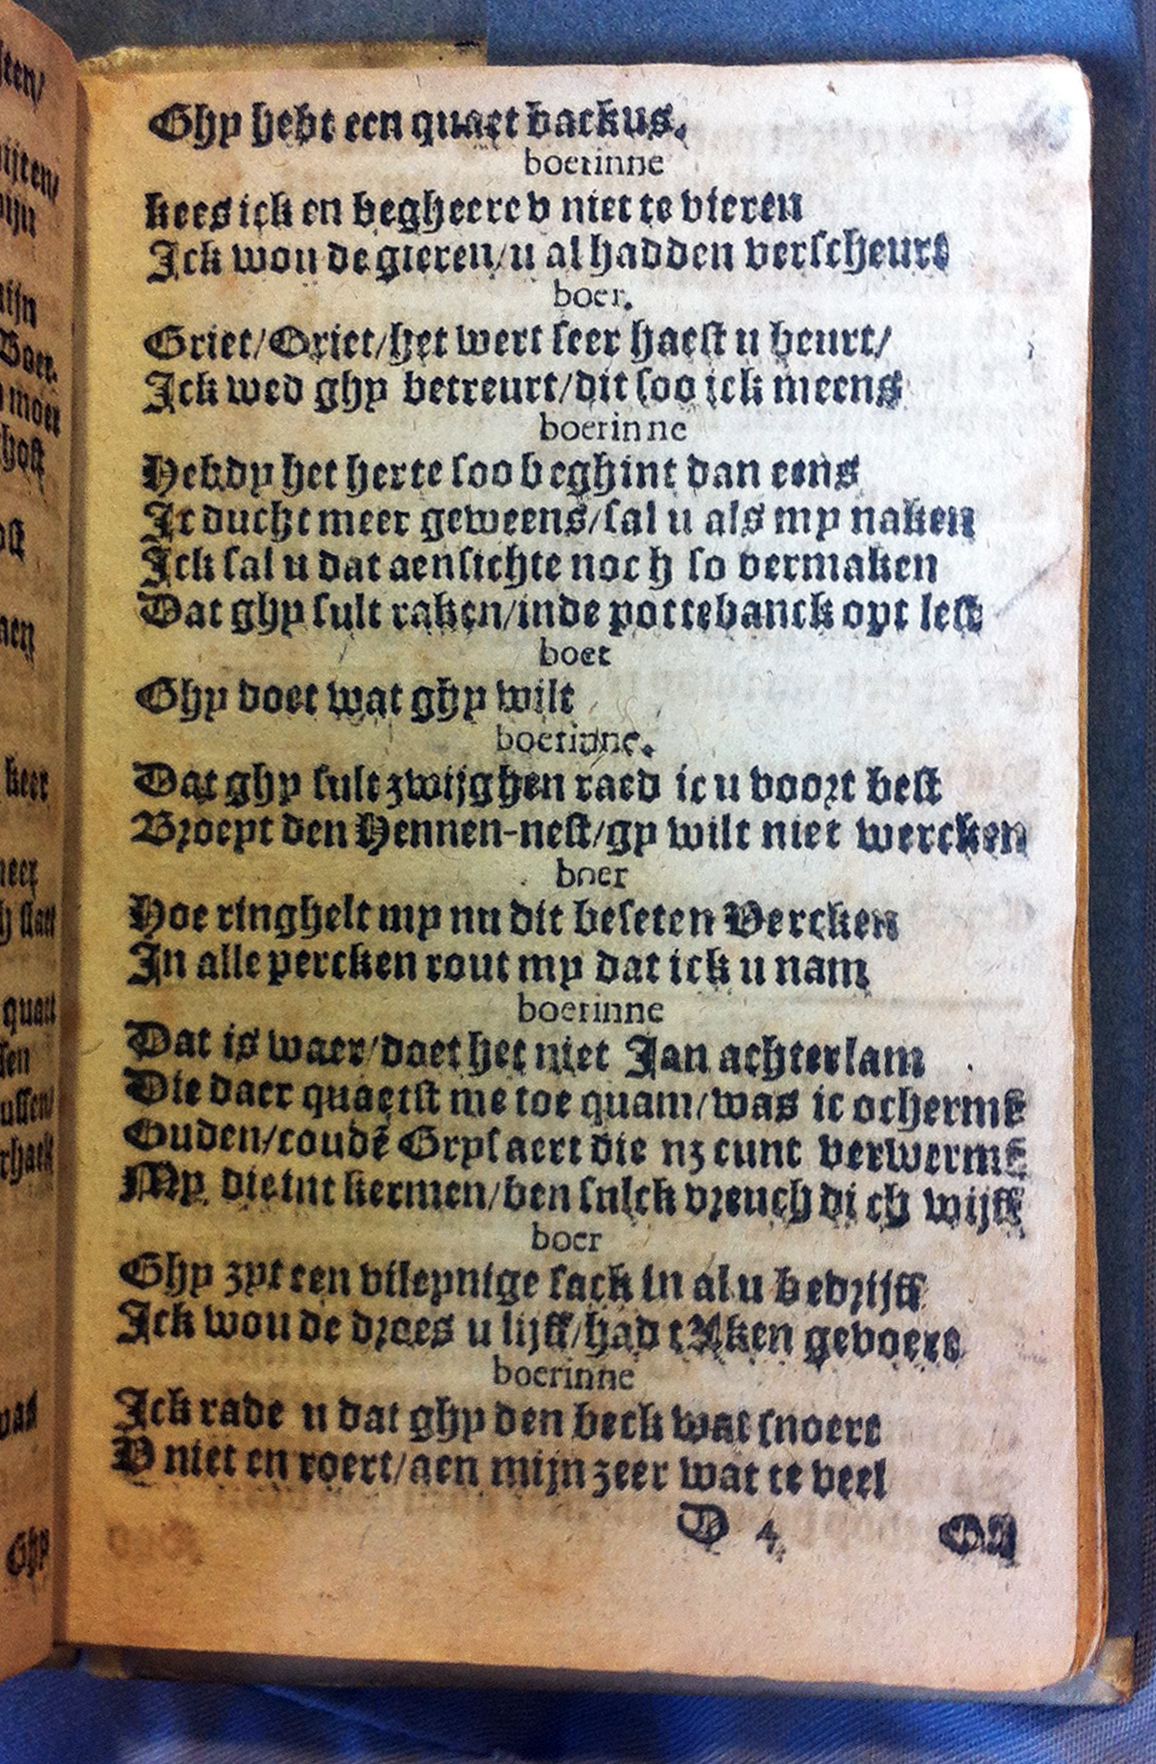 Ghy hebt een quaet backus.
boerinne
kees ick en begheere v niet te vieren
Ick wou de gieren/u al hadden verscheurt
boer.
Griet/Griet/het wert seer haest u beurt/
Ick wed ghy betreurt/dit soo ick meens
boerinne
Hebdy het herte soo beghint dan eens
Ic ducht meer geweens/sal u als my naken
Ick sal u dat aensichte noch so vermaken
Dat ghy sult raken/inde pottebanck opt lest
boer
Ghy doet wat ghy wilt
boerinne.
Dat ghy sult zwijghen raed ic u voort best
Broept den Hennen-nest/gy wilt niet wercken
boer
Hoe ringhelt my nu dit beseten Vercken
In alle percken rout my dat ick u nam
boerinne
Dat is waer/doet het niet Jan achterlam
Die daer quaetst me toe quam/was ic ocherme
Ouden/coudē Grysaert die nz cunt verwermē
My dietnt kermen/ben sulck vreuchdich wijff
boer
Ghy zyt een vileynige sack in al u bedrijff
Ick wou de droes u lijff/had tAken gevoert
boerinne
Ick rade u dat ghy den beck wat snoert
V niet en roert/aen mijn zeer wat te veel
D 4